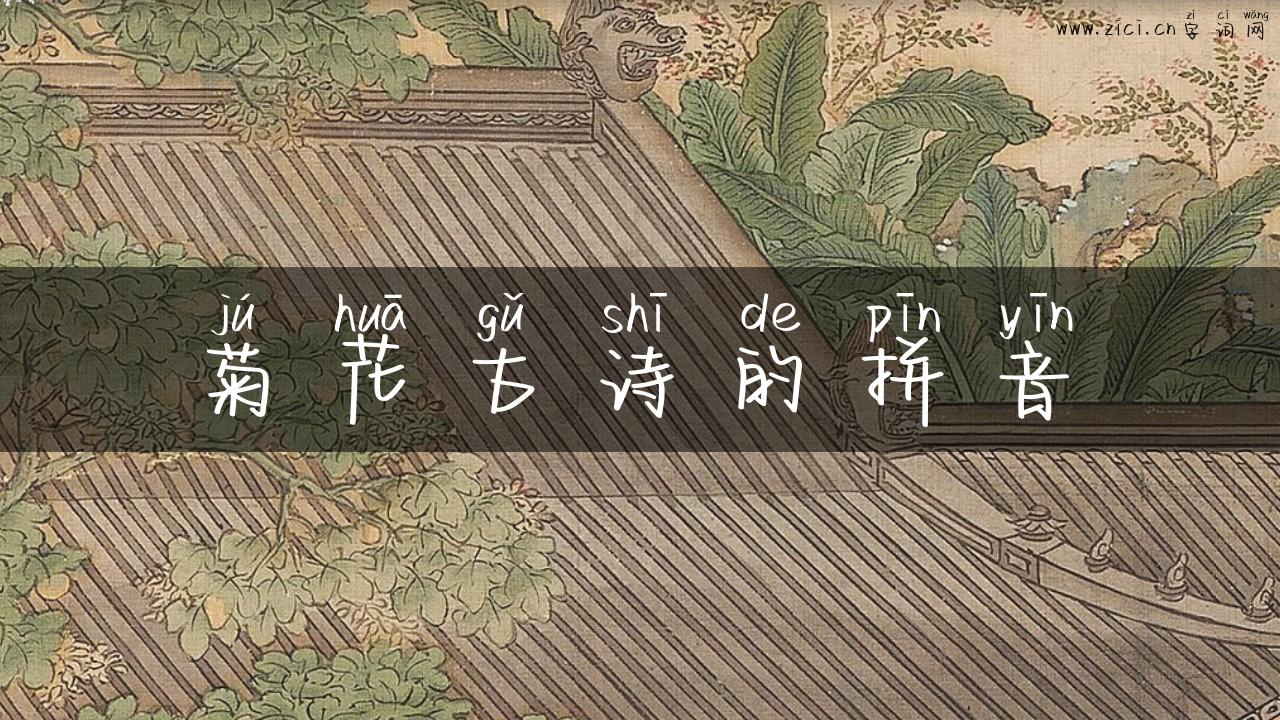 zì cí wǎng
www.zici.cn 字词网
jú huā gǔ shī de pīn yīn
菊花古诗的拼音